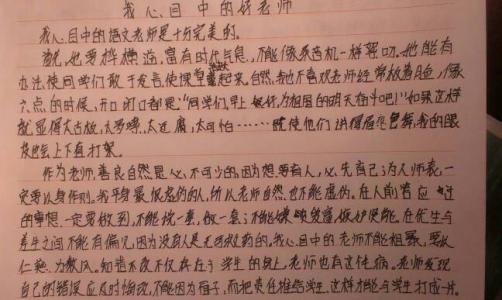 我心目中的好老师
我心目中的语文老师是十分完美的。
首先,她要桦横溢,富有时代气息,不能像录音机一样罗叨。她能有
办法使同学们敢于发言,使课堂起来。自然,我也不喜欢老师经常放着脸,像
六点的时候,开口闭口都是"同学们早上好,为祖国的明天奋斗吧!"如果这样
就显得太古放,太罗嗦,太迂腐,太可怕……使他们讲得眉飞色舞,我的眼
皮也会上下直打架。
作为老师,善良自然是必不可少的,因为想要育人,必先自己为人师表,一
定要以身作则。我平身最恨虚伪的人,所以老师自然也不能虚伪。在人前答应过
的事想一定要做到,不能说一套,做一套;不能。在优生与
差生之间不能有偏见,因为没有人是无可救药的。我心目中的老师不能粗暴,要以
仁慈为教风。知错不改不仅存在于学生的身上,老师也有这传病。老师发现
自己的错误应及时悔改,不能因为面子,而把责任推给学生,这样才能与学生打成一片。